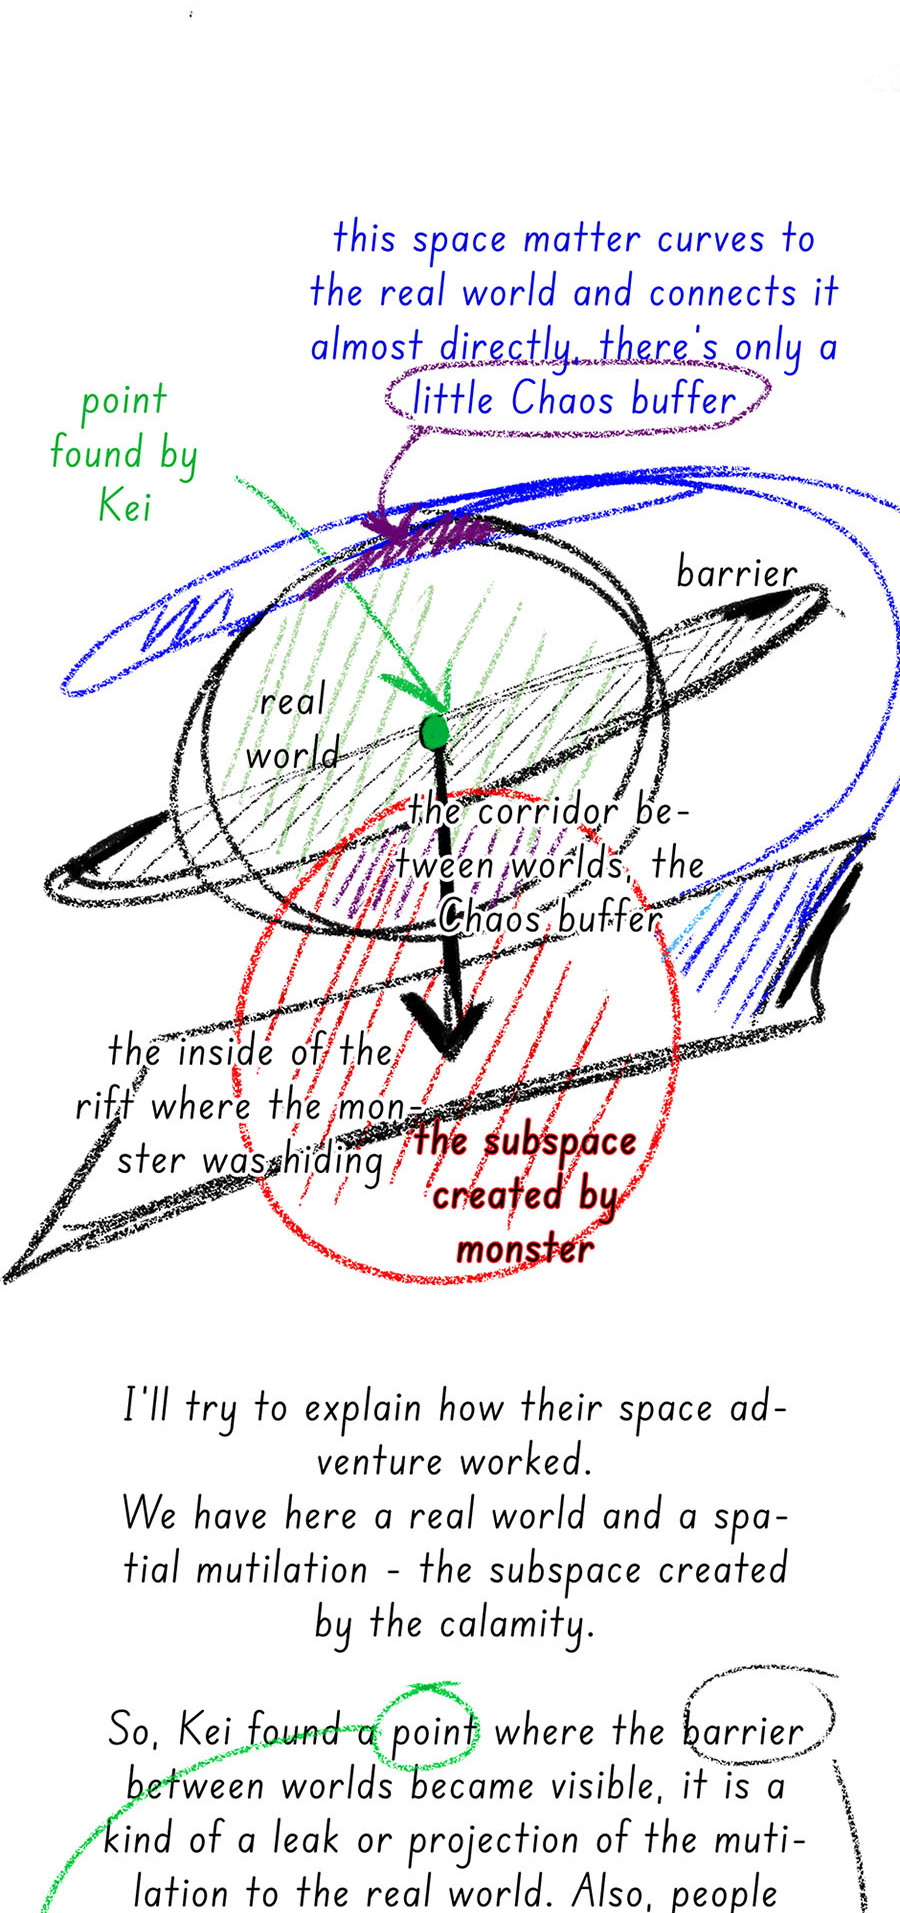 this space matter curves to
the real world and connects it
almost directly, there's only a
little Chaos buffer
point
found by
Kei
barrier
real
world
the corridor be-
tween worlds, the
Chaos buffer
the inside of the
rift where the mon-
ster was hiding
the subspace
created by
monster
I'll try to explain how their space ad-
venture worked.
We have here a real world and a spa-
tial mutilation - the subspace created
by the calamity.
So, Kei found a point where the barrier
between worlds became visible, it is a
kind of a leak or projection of the muti-
lation to the real world. Also, people